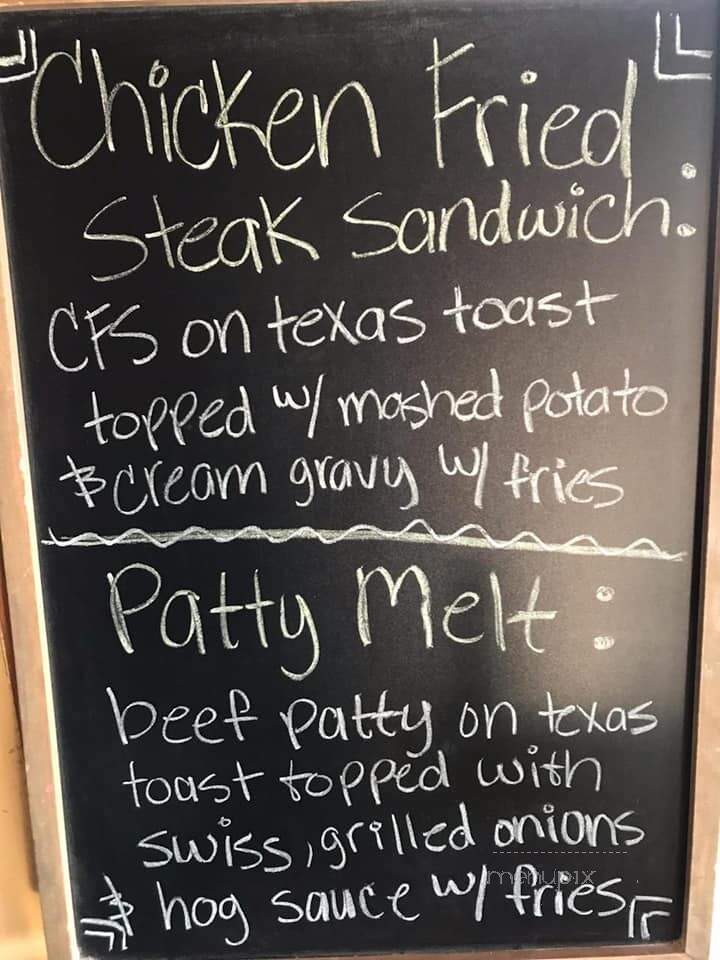 Chicken Fried
Steak Sandwich:
CFS on texas toast
topped w/ mashed potato
& cream gravy w/ fries
Patty Melt:
beef patty on texas
toast topped with
swiss, grilled onions
menupix
& hog sauce w/ fries